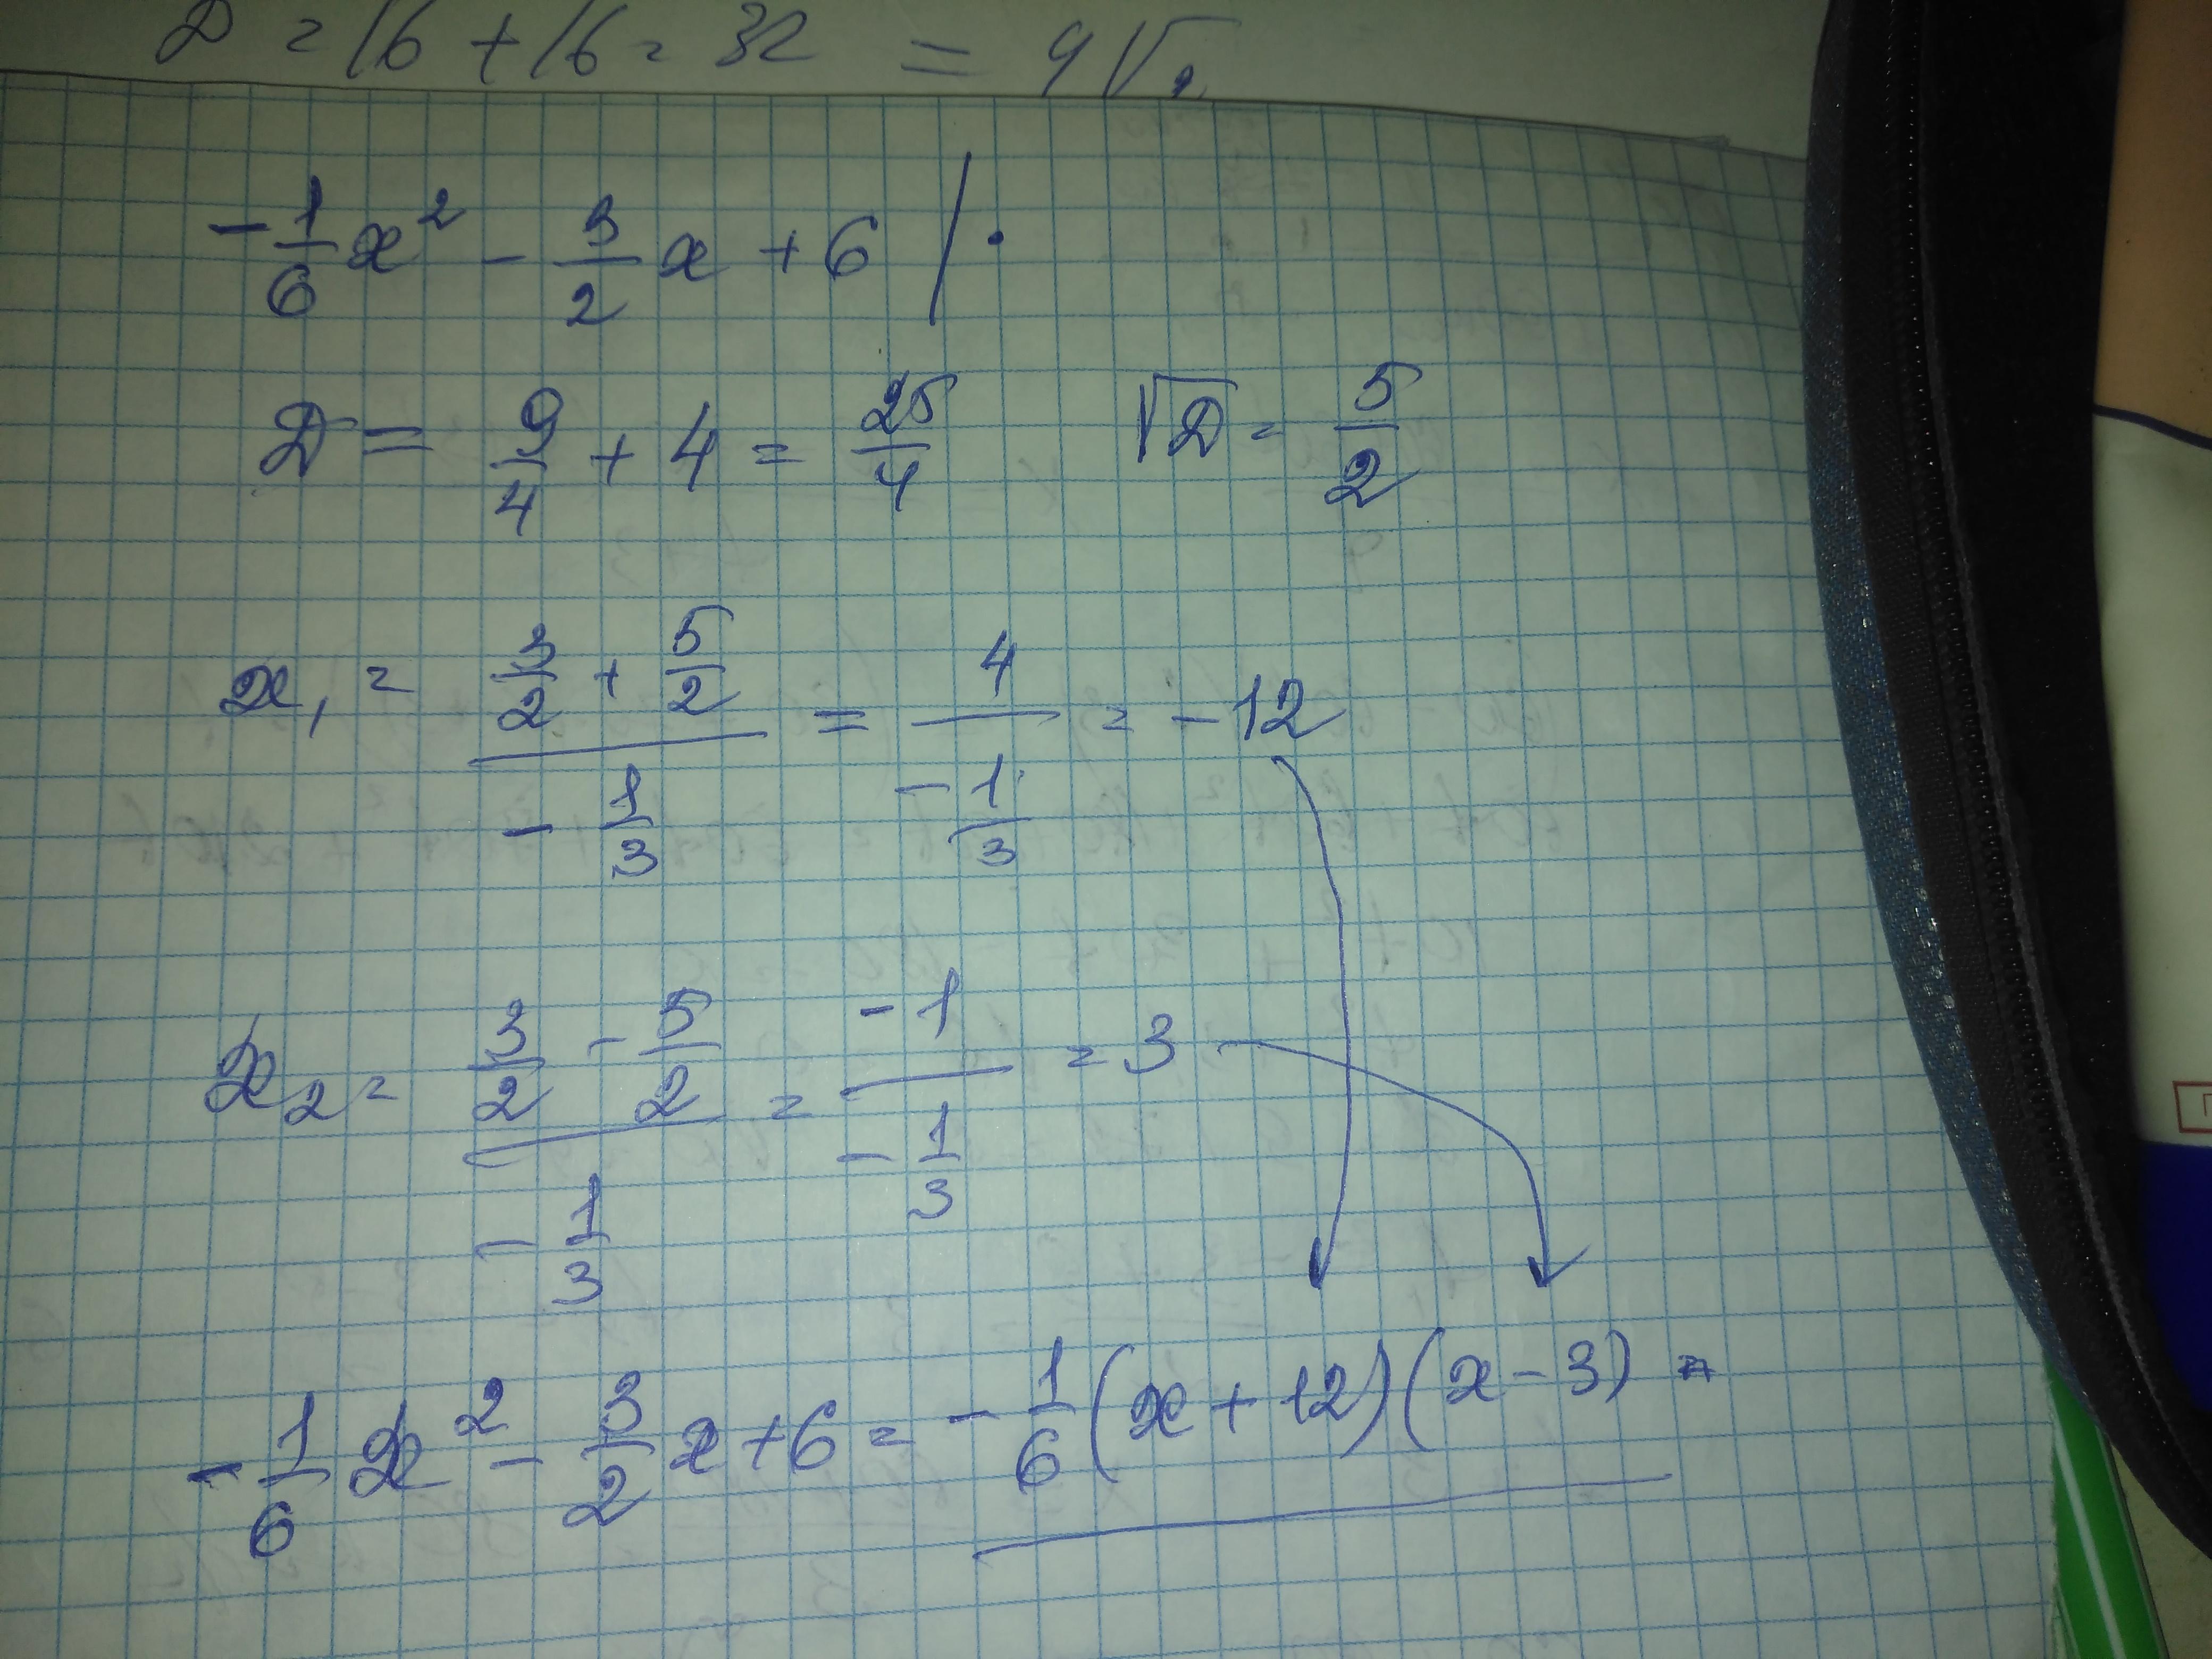 D = 16 + 16 = 32 = 4√2
-1/6 x² - 3/2 x + 6 / ·
D = 9/4 + 4 = 25/4 √D = 5/2
x₁ = (3/2 + 5/2)/(-1/3) = 4/(-1/3) = -12
x₂ = (3/2 - 5/2)/(-1/3) = -1/(-1/3) = 3
-1/6 x² - 3/2 x + 6 = -1/6 (x + 12)(x - 3) =